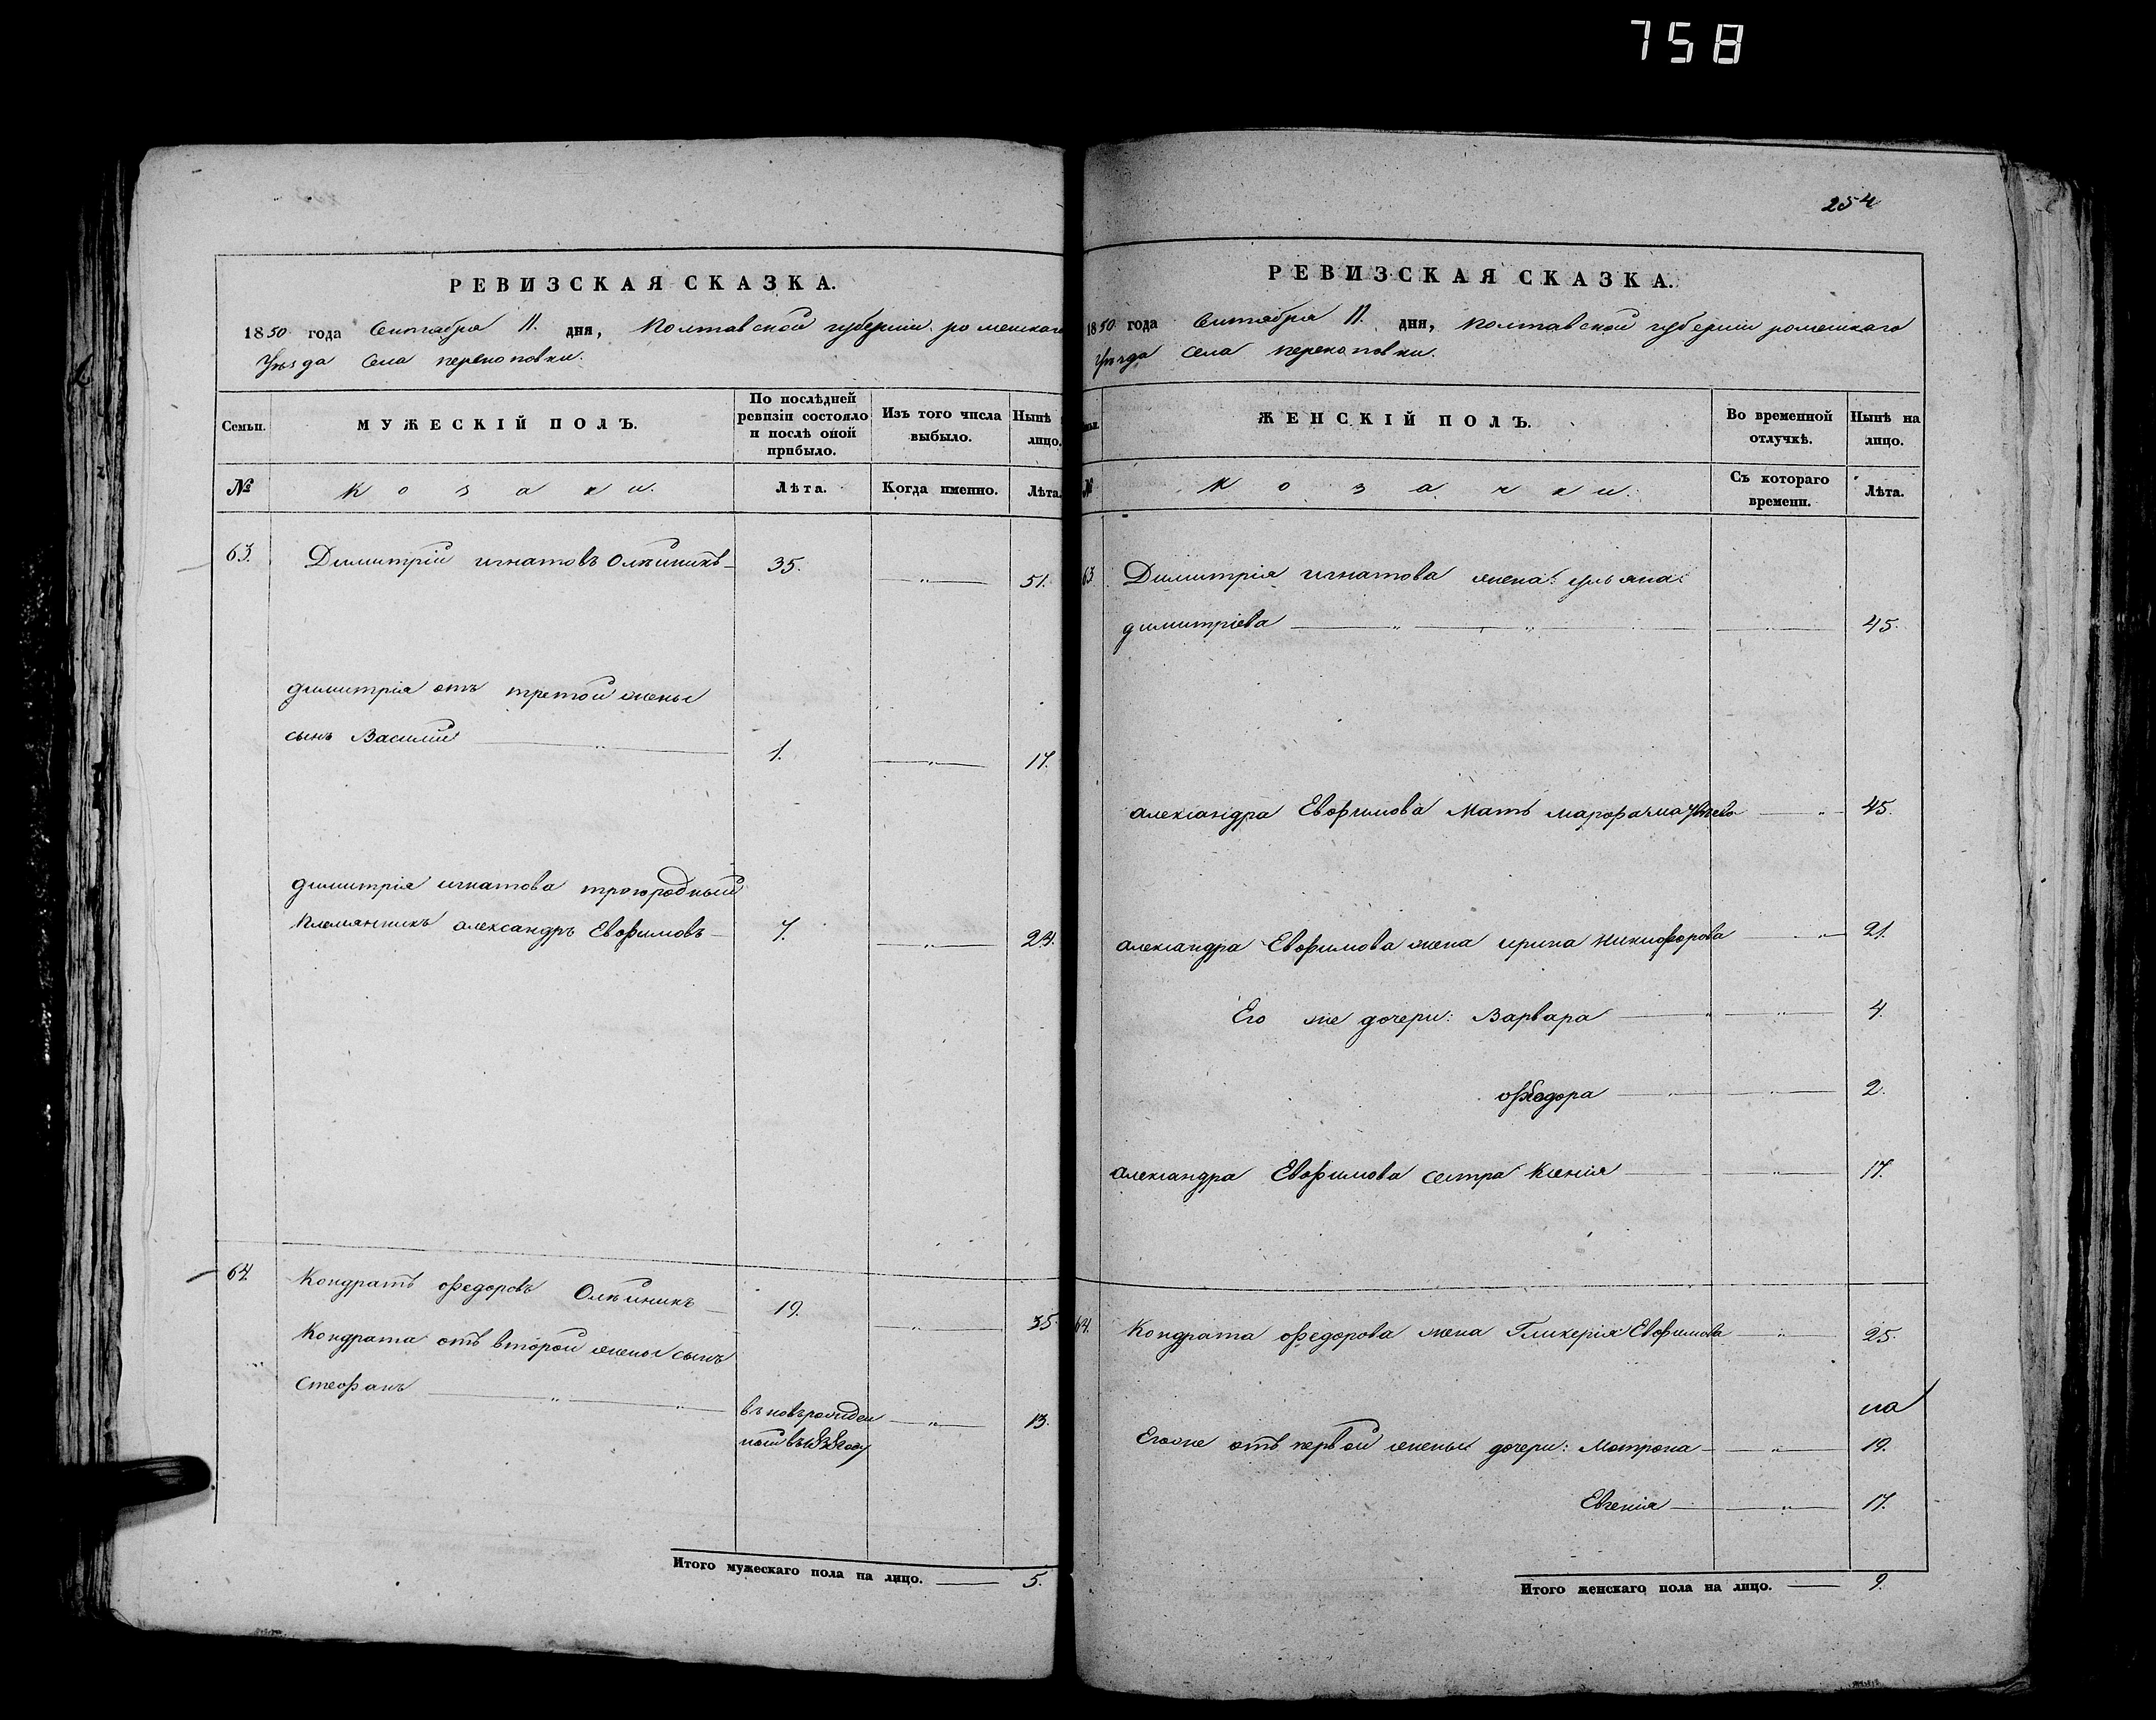 758
РЕВИЗСКАЯ СКАЗКА.
1850 года Сентября 11. дня, Полтавской губерніи роменскаго
Уѣзда Села перекоповки.
Семьи. МУЖЕСКІЙ ПОЛЪ. По послѣдней ревизіи состояло и послѣ оной прибыло. Изъ того числа выбыло. Нынѣ лицо.
№ Козаки. Лѣта. Когда именно. Лѣта.
63. Димитрій игнатовъ Олѣйникъ 35. 51.
димитрія отъ третой жены
сынъ Василий 1. 17.
димитрія игнатова троюродный
племянникъ александръ Евфимовъ 7. 23.
64. Кондратъ федоровъ Олѣйникъ 19. 35.
Кондрата отъ второй жены сынъ
Стефанъ въновърожден 13.
ный въ 1838 году
Итого мужескаго пола на лицо. 5.
254
РЕВИЗСКАЯ СКАЗКА.
1850 года Сентября 11. дня, полтавской губерніи роменскаго
Уѣзда села перекоповки.
ЖЕНСКІЙ ПОЛЪ. Во временной отлучкѣ. Нынѣ на лицо.
№ Козачки. Съ котораго времени. Лѣта.
63 Димитрія игнатова жена: ульяна
димитріева 45.
александра Евфимова мать марфа 45.
александра Евфимова жена ирина никифорова 21.
Его же дочери: Варвара 4.
феодора 2.
александра Евфимова сестра Ксенія 17.
64. Кондрата федорова жена Гликерія Евфимова 25.
Егоже отъ первой жены дочери: Мотрона 19.
Евгенія 17.
Итого женскаго пола на лицо. 9.